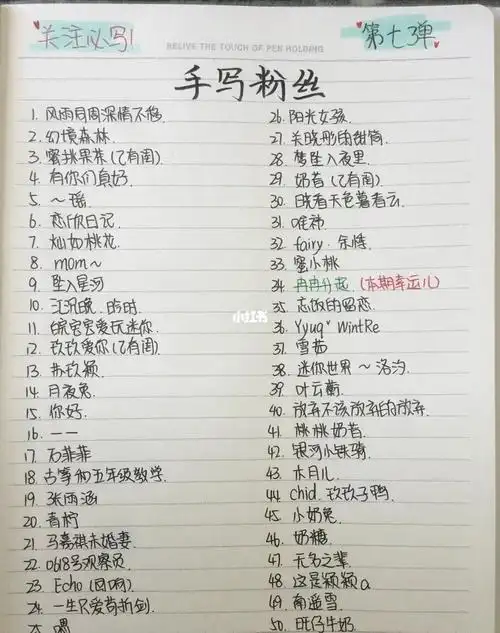 关注必写!
第七弹
BELIVE THE TOUCH OF PEN HOLDING
手写粉丝
1. 风雨同周深情不移.
2. 幻境森林.
3. 蜜桃果茶(已有闺)
4. 有你们真好.
5. ~瑶.
6. 恋欣日记.
7. 灿如桃花.
8. mom~
9. 坠入星河
10. 江沉晚.时时.
11. 皖宝宝爱玩迷你.
12. 玖玖爱你(已有闺)
13. 苏玖颖.
14. 月夜兔.
15. 你好.
16. 一一
17. 石菲菲
18. 古筝和五年级数学.
19. 张雨涵
20. 青柠
21. 马嘉祺未婚妻.
22. 0618号观察员.
23. Echo(回响)
24. 一生只爱莴折剑.
25. 喂
26. 阳光女孩.
27. 关晓彤的甜筒.
28. 梦坠入夜里.
29. 奶昔(已有闺).
30. 日晓看天色暮看云.
31. 唯神.
32. fairy. 余恬.
33. 蜜小桃.
34. 冉冉升起.(本期幸运儿)
35. 忘你的留恋.
36. Yyuq* WintRe
37. 雪茹
38. 迷你世界~洛汐.
39. 叶云蘅.
40. 放弃不该放弃的放弃.
41. 桃桃奶昔.
42. 银河小铁骑.
43. 木月儿.
44. chid. 玖玖子鸭.
45. 小奶兔.
46. 奶糖.
47. 无名之辈.
48. 这是颖颖a.
49. 南遥雪.
50. 旺仔牛奶.
小红书